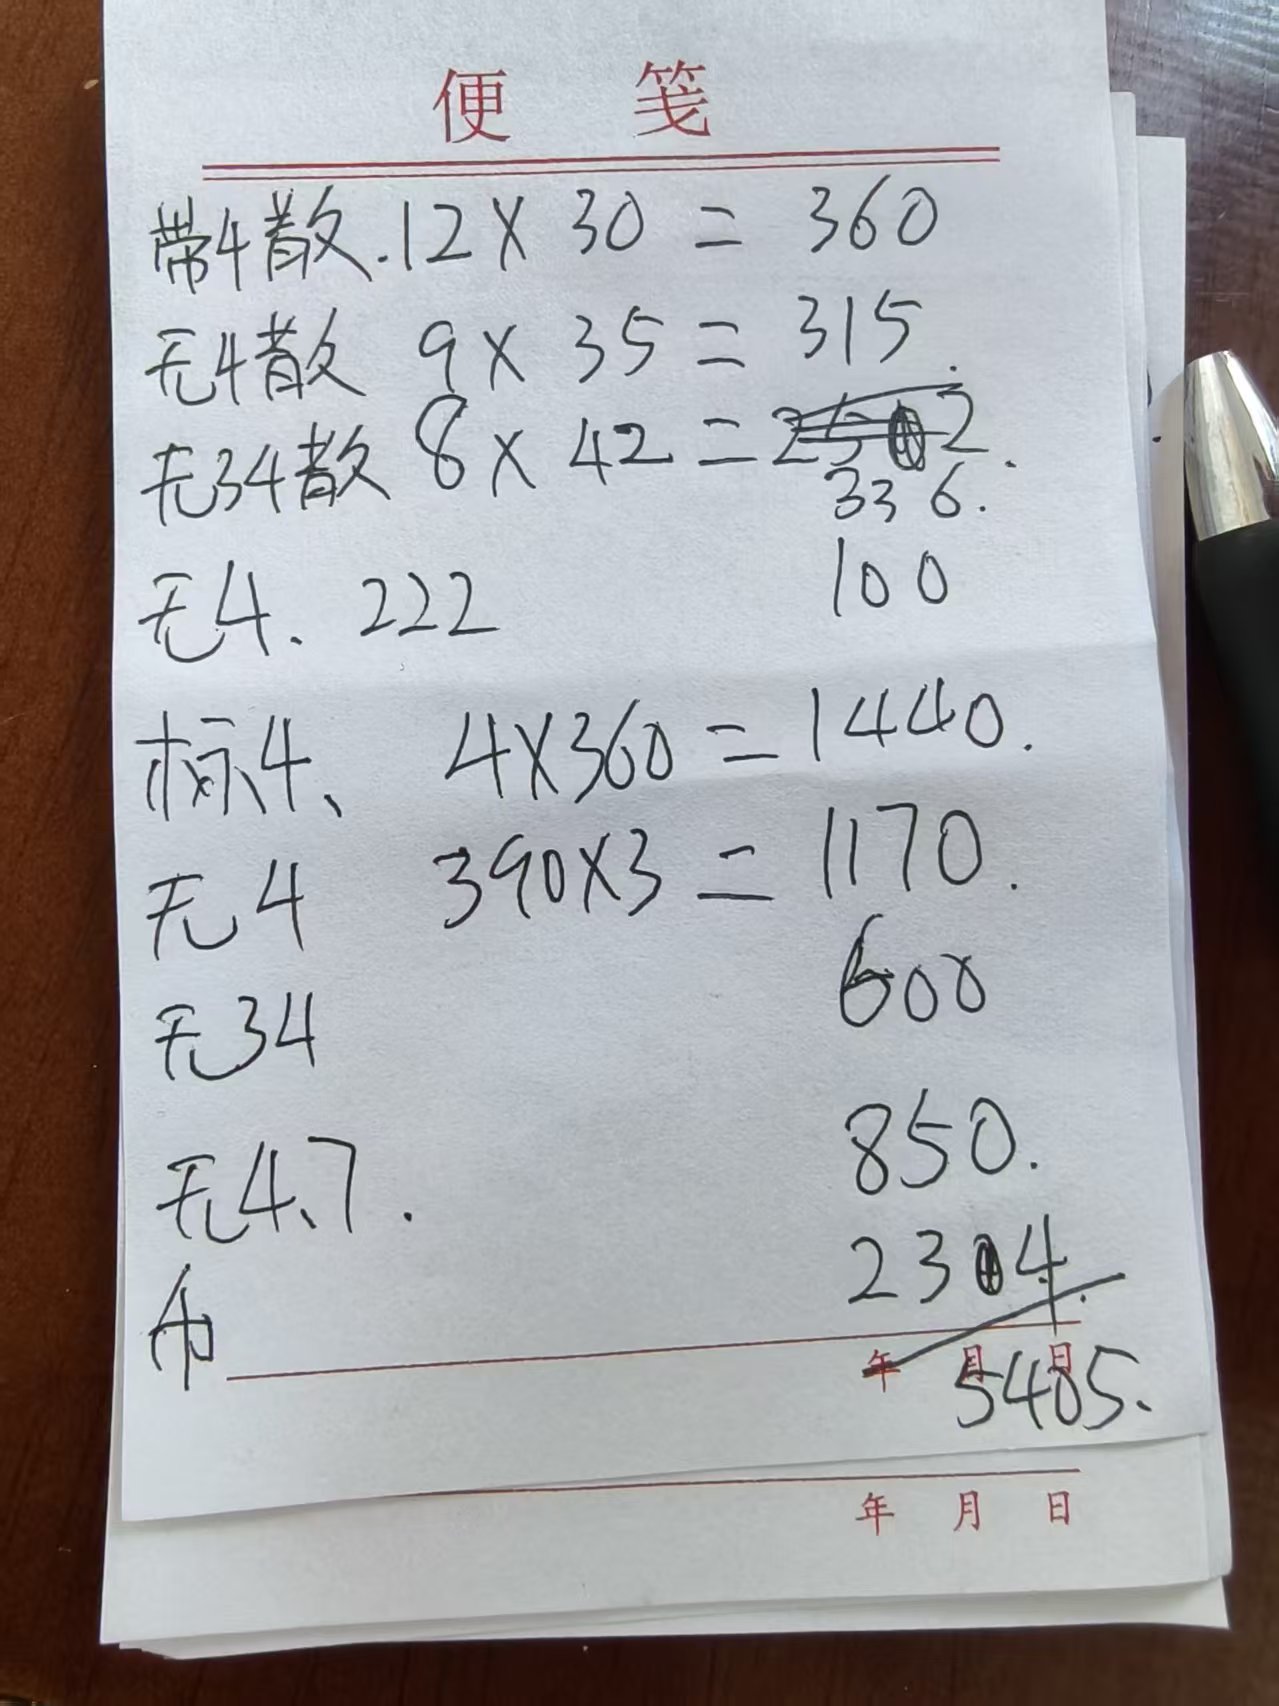 便 笺
带4散.12×30=360
无4散 9×35=315.
无34散 8×42=
336.
无4、222 100
标4、 4×360=1440.
无4 390×3=1170.
无34 600
无4、7. 850.
币 2304.
年 月 日
5485.
年 月 日